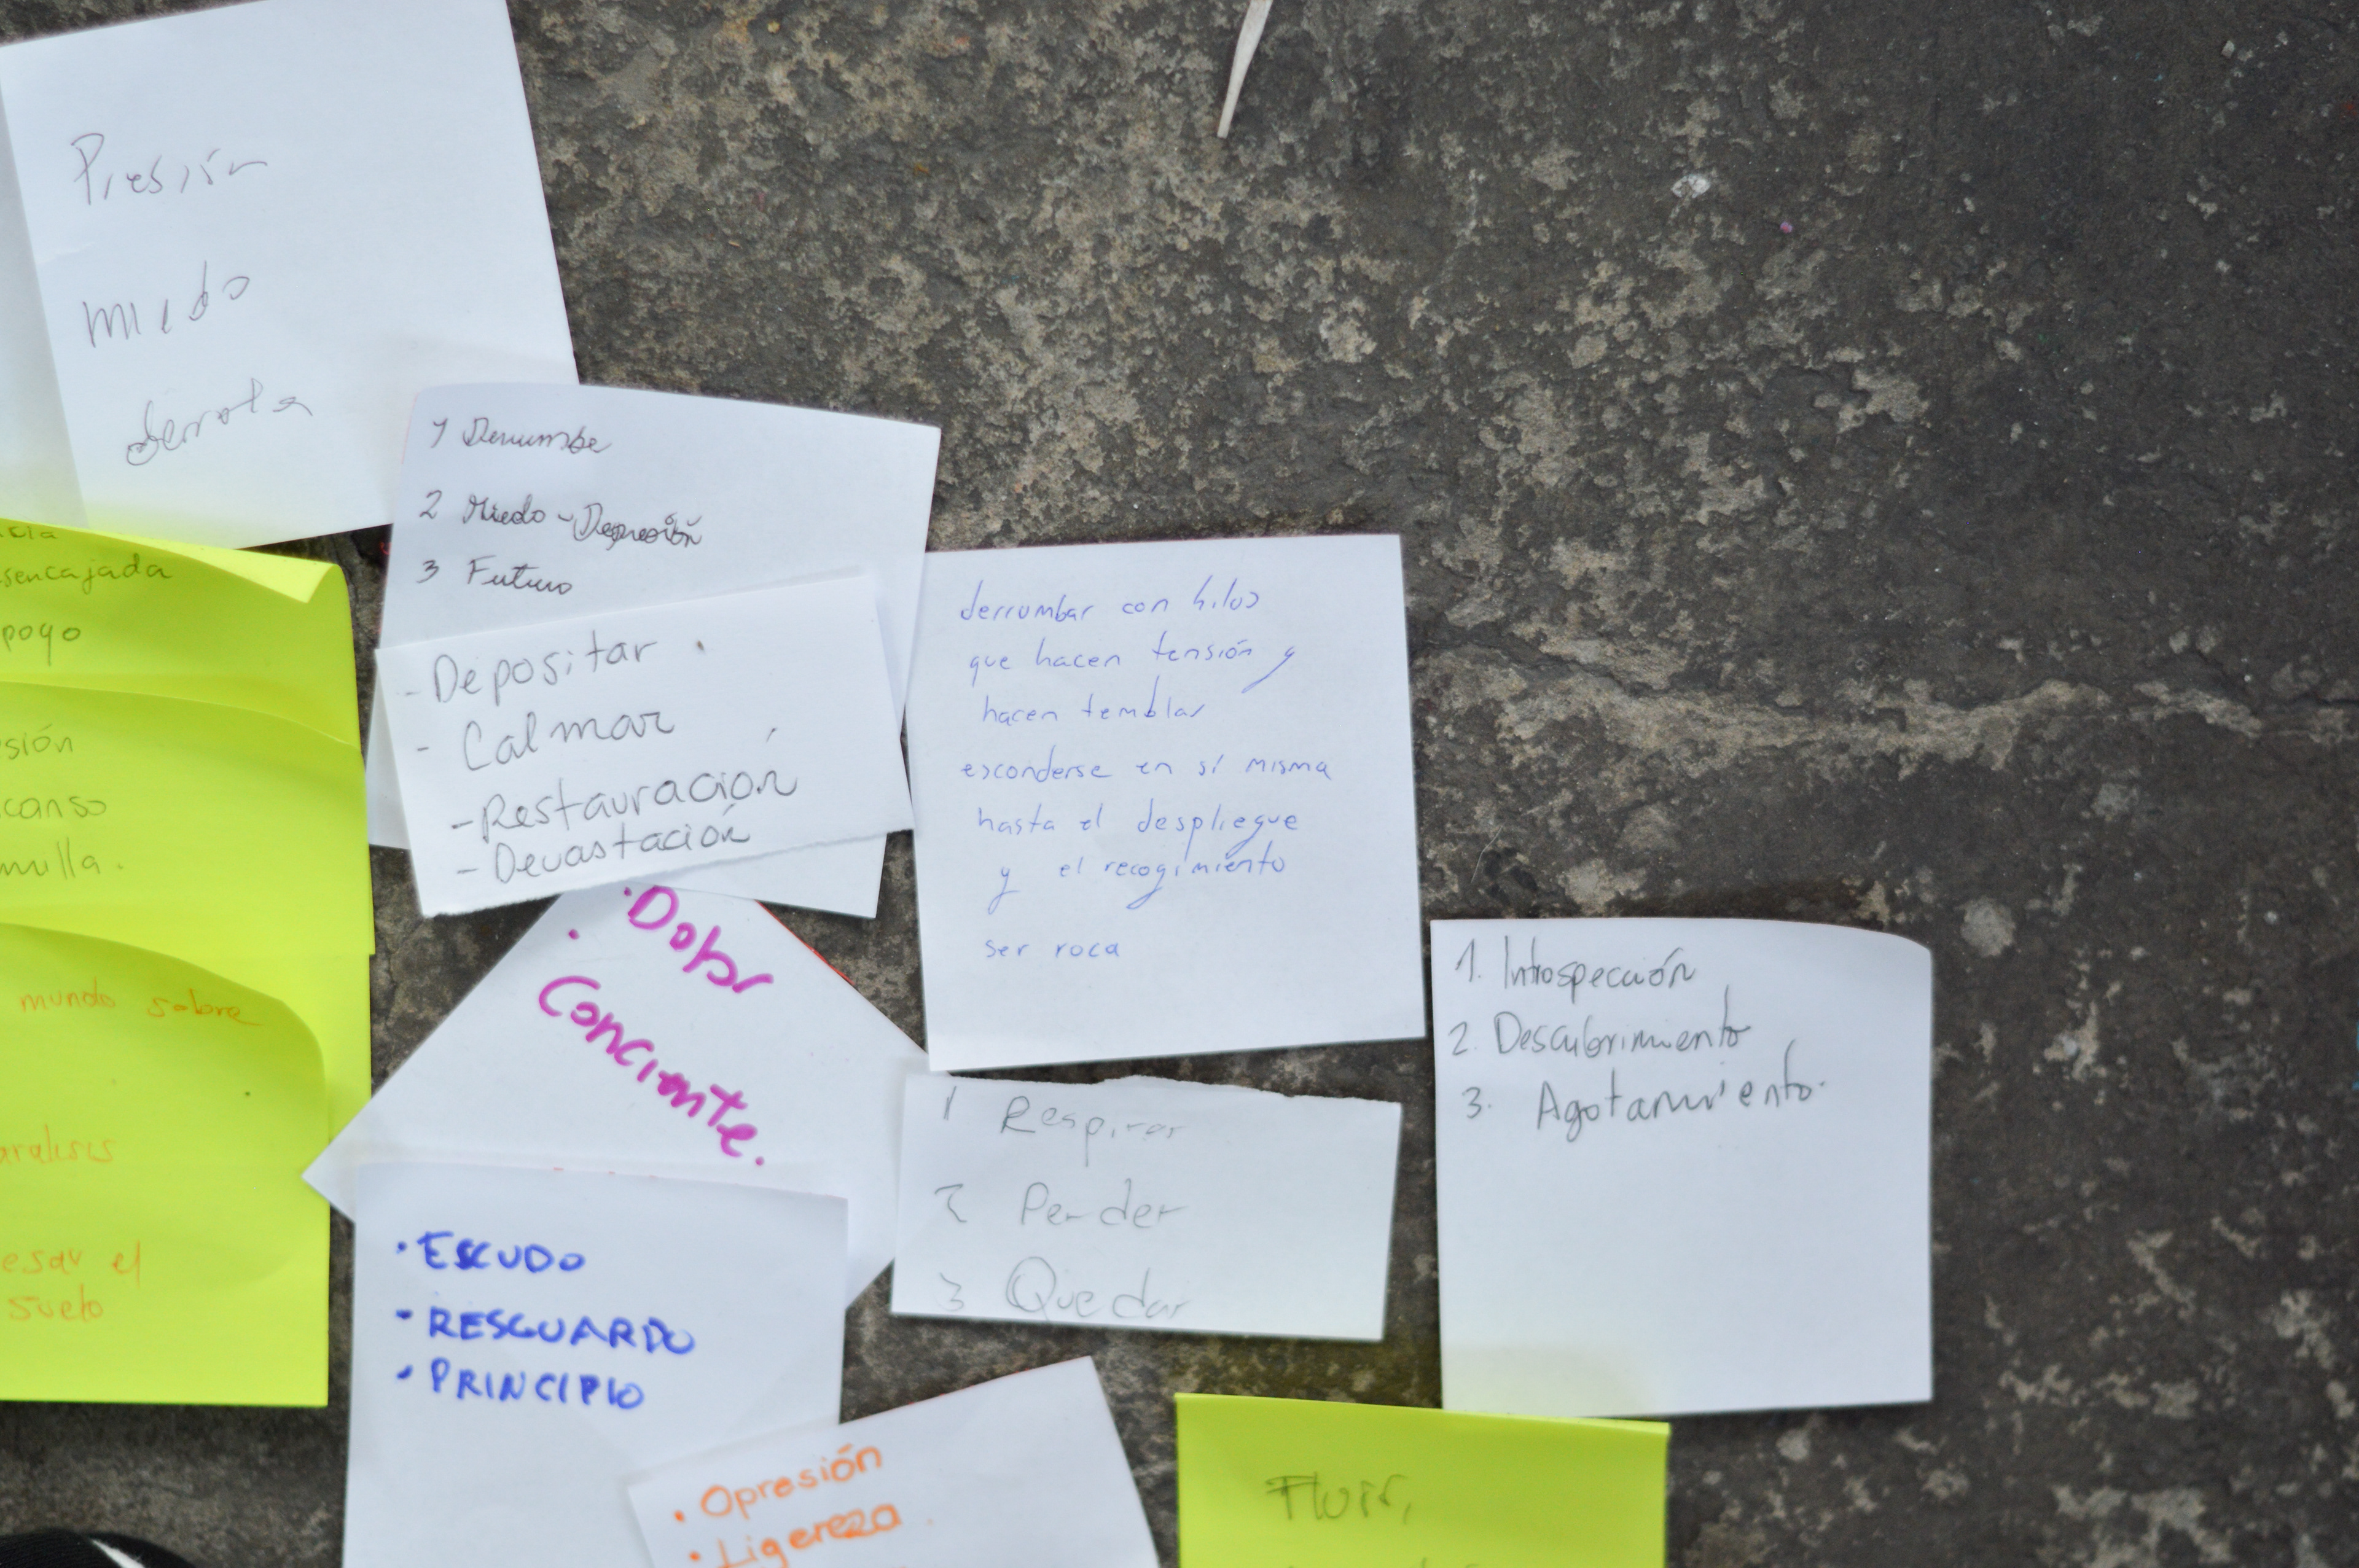 Presión
Miedo
derrota
1 Derrumbe
2 Miedo - Depresión
3 Futuro
sencajada
poyo
sión
canso
milla.
mundo sobre
aralisis
esar el
suelo
- Depositar
- Calmar
- Restauración
- Devastación
derrumbar con hilos
que hacen tensión y
hacen temblar
esconderse en sí misma
hasta el despliegue
y el recogimiento
ser roca
· Dolor
· Conciente.
1. Introspección
2. Descubrimiento
3. Agotamiento.
1 Respirar
2 Perder
3 Quedar
· ESCUDO
- RESGUARDO
· PRINCIPIO
· Opresión
· Ligereza
Fluir,